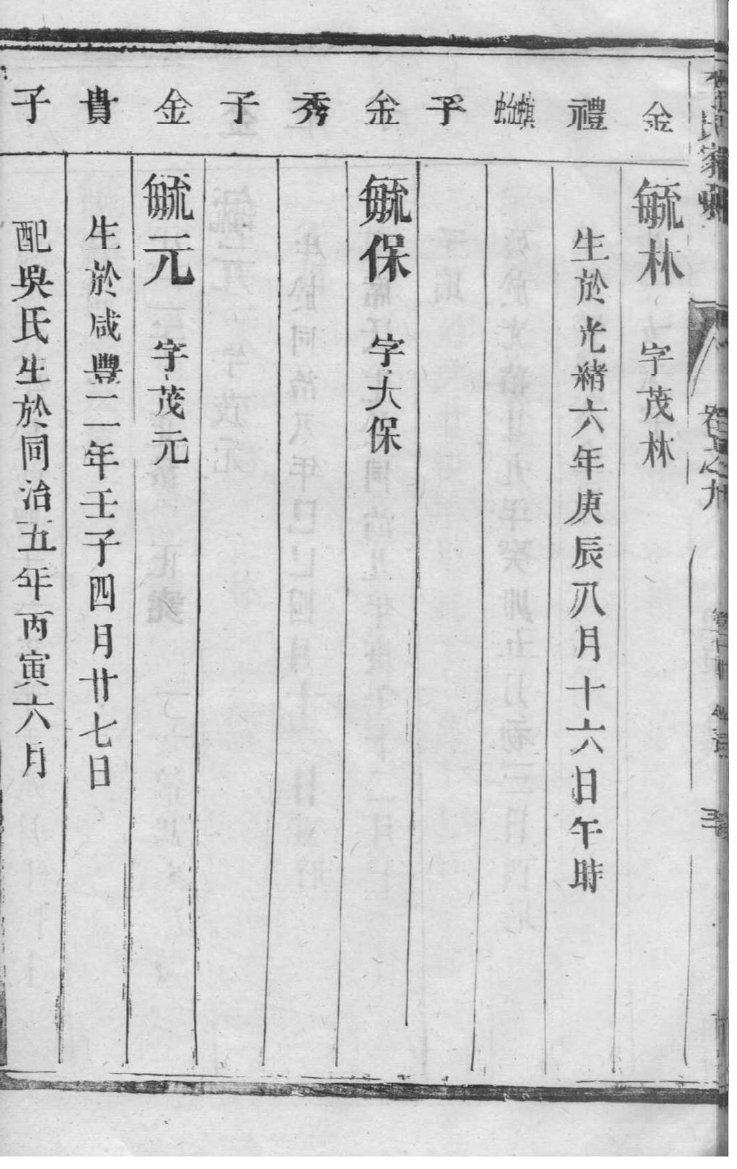 卷之九
金 毓林 字茂林
禮 生於光緒六年庚辰八月十六日午時
螟蛉
子
金 毓保 字大保
秀
子
金 毓元 字茂元
貴 生於咸豐二年壬子四月廿七日
子 配吳氏生於同治五年丙寅六月